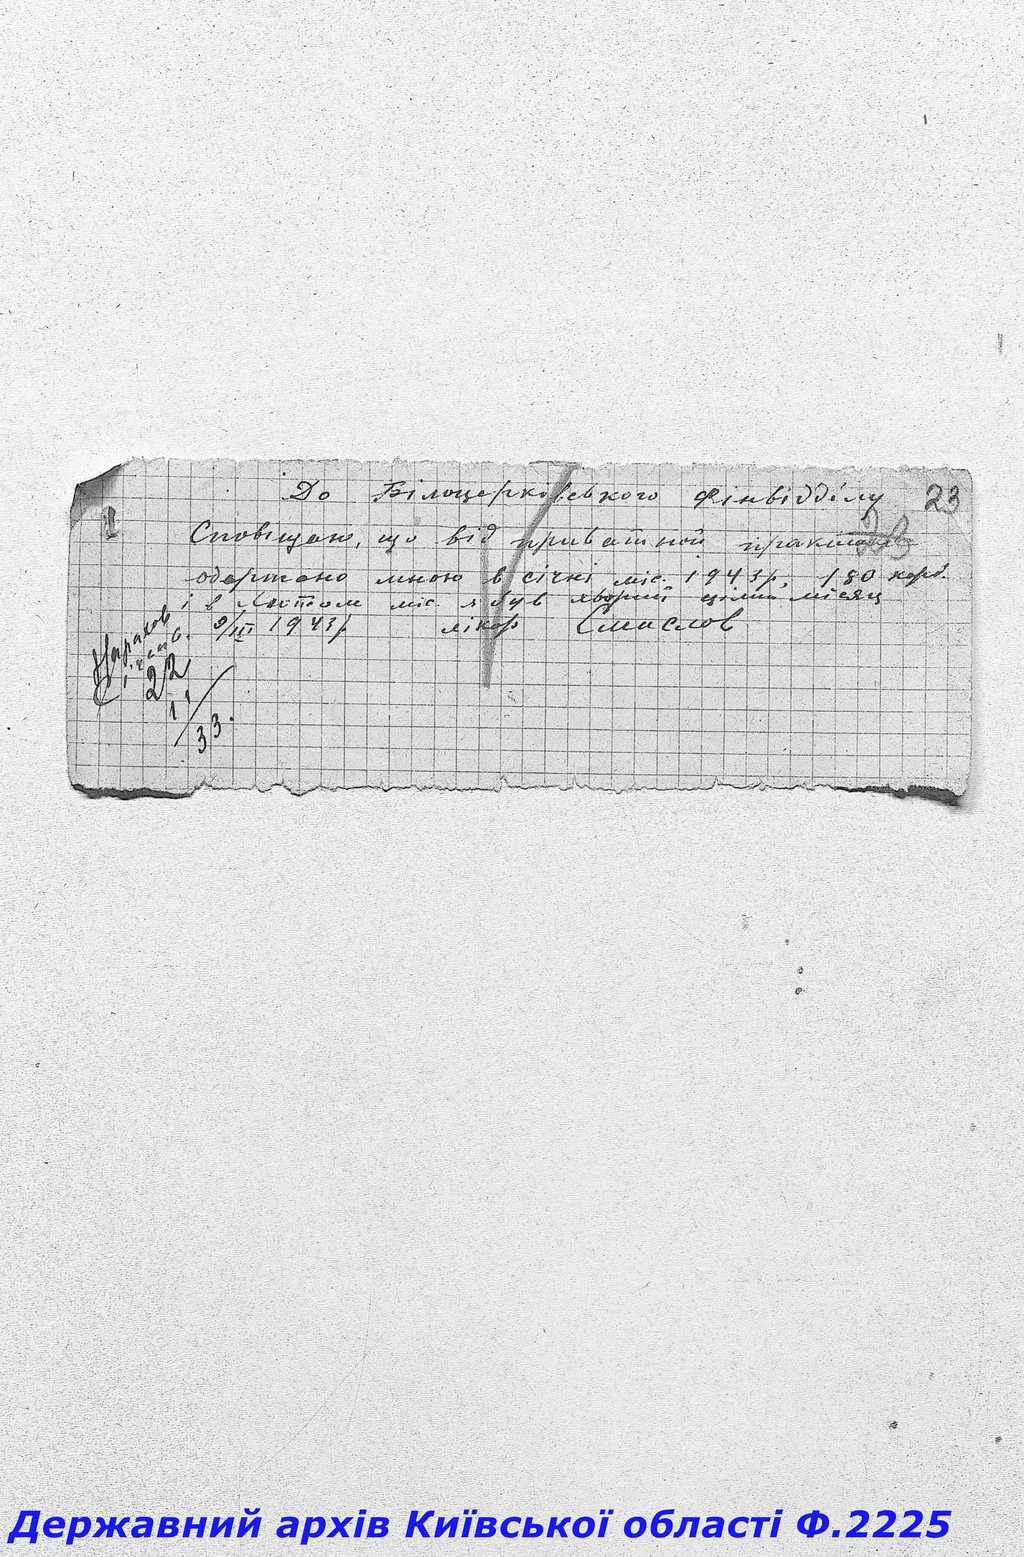 До Білоцерковського Фінвідділу 23
Сповіщаю, що від приватной практики
одержано мною в січні міс. 1943 р. 180 карб.
і в Лютом міс. я був хворий цілий місяц
9/III 1943 р. лікар Смислов
Нарахов
22
11/33.
Державний архів Київської області Ф.2225